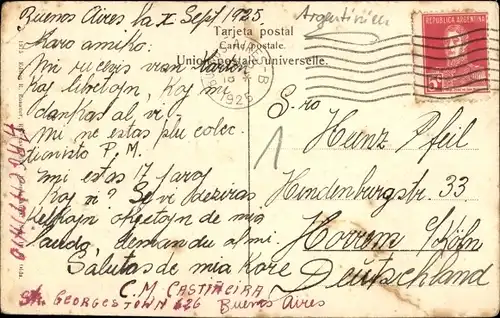 Buenos Aires la I Sept 1925.
Karo amiko:
Mi ricevis vian karton
kaj libretojn, kaj mi
dankas al vi.
Mi ne estas plu colec-
tionisto P.M.
mi estas 17 jaroj
Kaj vi? Se vi deziras
objektojn de mia
lando, demandu al mi.
Salutas de mia kore
C. M. CASTIÑEIRA
GEORGESTOWN 626 Buenos Aires
Argentinien
Tarjeta postal
Carte postale.
Union postale universelle.
REPUBLICA ARGENTINA
5
1
S-ro
Heinz Pfeil
Hindenburgstr. 33
Horrem b/Köln
Deutschland